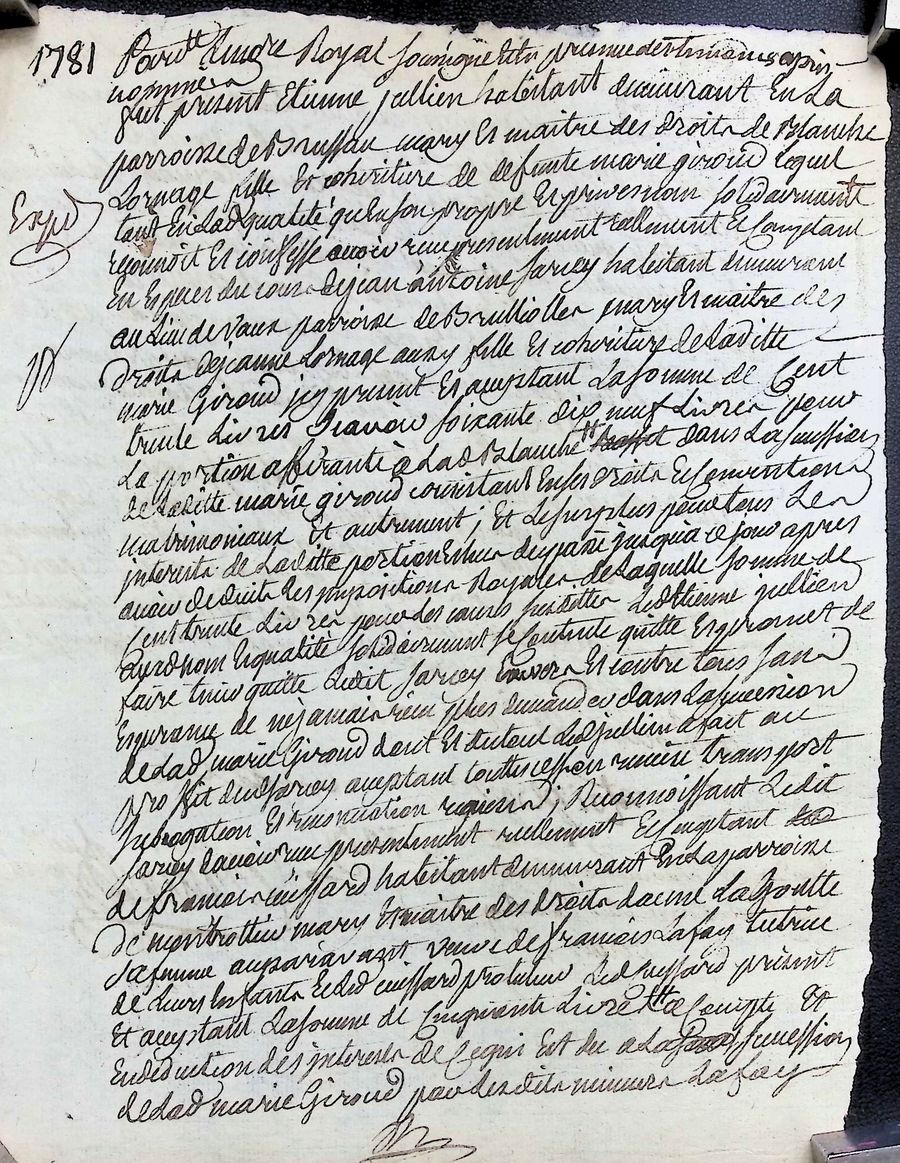 1781
Pard.t Notre Royal soussigné et En presence des temoins apres
nommes
fut present Etienne jullien habitant demeurant En La
parroisse de Brussau mary Et maitre des droits de Blanche
Lornage fille Et coheritiere de deffunte marie giroud lequel
Exp.é
tant En Lad. qualité qu'En son propre Et privé nom solidairement
reconnoit Et confesse avoir reçu presentement rellement Et Comptant
En Especes du cours de jean antoine jarcey habitant demeurant
au Lieu de Vaux parroisse de Brullioles mary Et maitre des
droits de jeanne Lornage aussy fille Et coheritiere de Laditte
marie Giroud icy present Et acceptant La somme de Cent
trente Livres Scavoir soixante dix neuf Livres pour
La portion afferante a Lad. Blanche dans La succession
de Laditte marie giroud consistant En ses droits Et Conventions
matrimoniaux Et autrement ; Et Le surplus pour tous Les
interests de Laditte portion Echus du passé jusqu'a ce jour apres
avoir deduit Les impositions Royales de Laquelle somme de
Cent trente Livres pour Les causes susdittes Led. Etienne jullien
auxd. nom Et qualité solidairement se Contente quitte Et promet de
faire tenir quitte Ledit jarcey Envers Et contre tous sans
Esperance de n'y jamais rien plus demander dans La succession
de Lad. marie Giroud dont Et du tout Led. jullien a fait au
proffit dud. jarcey acceptant touttes cession remise transport
subrogation Et renonciation requises ; Reconnoissant Ledit
jarcey d'avoir reçu presentement reellement Et Comptant
de françois cuissard habitant demeurant En La parroisse
de montrottier mary Et maitre des droits d'anne La goutte
sa femme auparavant veuve de françois Lafay tutrice
de Leurs Enfants Et Led. cuissard protuteur Led. cuissard present
Et acceptant La somme de Cinquante Livres a Compte Et
En deduction des interests de Ce qui Est du a La succession
de Lad. marie Giroud par Lesdits mineurs Lafay